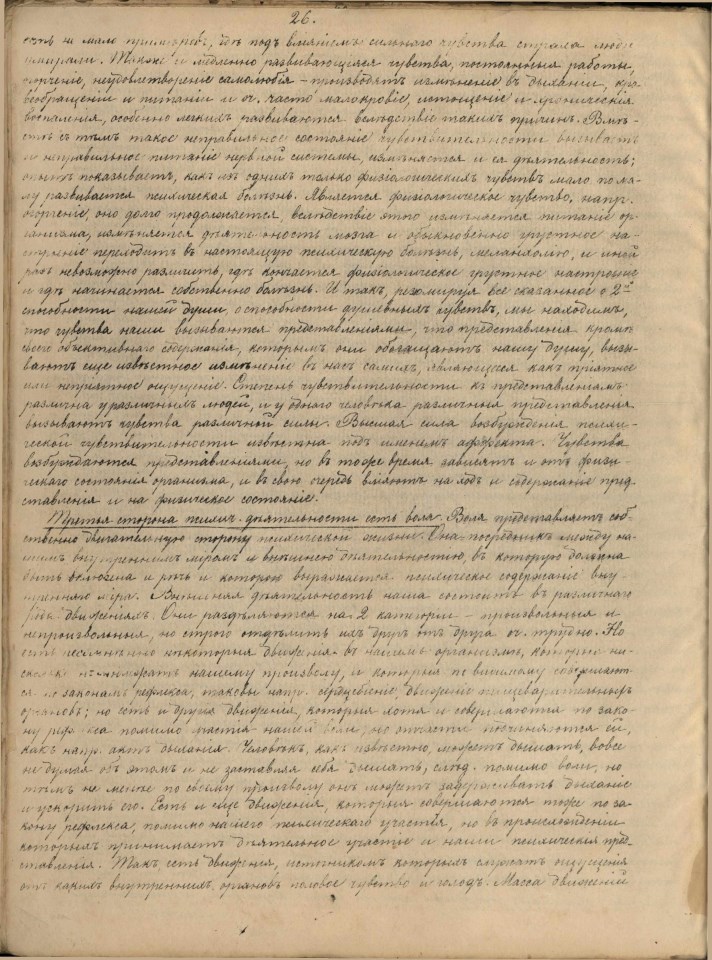 26.
есть не мало примѣровъ, гдѣ подъ вліяніемъ сильнаго чувства страха люди
умирали. Также и медленно развивающіяся чувства, постоянныя работы,
огорченіе, неудовлетвореніе самолюбія – производятъ измѣненіе въ дыханіи, кро-
вообращеніи и питаніи и оч. часто малокровіе, истощеніе и хроническія
воспаленія, особенно легкихъ развиваются вслѣдствіе такихъ причинъ. Вмѣ-
стѣ съ тѣмъ такое неправильное состояніе чувствительности вызываетъ
и неправильное питаніе нервной системы, измѣняется и ея дѣятельность;
опытъ показываетъ, какъ изъ однихъ только физіологическихъ чувствъ мало по ма-
лу развивается психическая болѣзнь. Является физіологическое чувство, напр.
огорченіе, оно долго продолжается, вслѣдствіе этого измѣняется питаніе ор-
ганизма, измѣняется дѣятельность мозга и обыкновенно грустное на-
строеніе переходитъ въ настоящую психическую болѣзнь, меланхолію, и иной
разъ невозможно различить, гдѣ кончается физіологическое грустное настроеніе
и гдѣ начинается собственно болѣзнь. И такъ, резюмируя все сказанное о 2ой
способности нашей души, о способности душевныхъ чувствъ, мы находимъ,
что чувства наши вызываются представленіями, что представленія кромѣ
своего объективнаго содержанія, которымъ они обогащаютъ нашу душу, вызы-
ваютъ еще извѣстное измѣненіе въ насъ самихъ, являющееся какъ пріятное
или непріятное ощущеніе. Степень чувствительности къ представленіямъ
различна у различныхъ людей, и у одного человѣка различныя представленія
вызываютъ чувства различной силы. Высшая сила возбужденія психи-
ческой чувствительности извѣстна подъ именемъ аффекта. Чувства
возбуждаются представленіями, но въ тоже время зависятъ и отъ физи-
ческаго состоянія организма, и въ свою очередь вліяютъ на ходъ и содержаніе пред-
ставленія и на физическое состояніе.
Третья сторона психич. дѣятельности есть воля. Воля представляетъ соб-
ственно двигательную сторону психической жизни. Она посредникъ между на-
шимъ внутреннимъ міромъ и внѣшнею дѣятельностію, въ которую должна
быть включена и рѣчь и которою выражается психическое содержаніе вну-
тренняго міра. Внѣшняя дѣятельность наша состоитъ въ различнаго
рода движеніяхъ. Они раздѣляются на 2 категоріи – произвольныя и
непроизвольныя, но строго отдѣлить ихъ другъ отъ друга оч. трудно. Но
есть несомнѣнно нѣкоторыя движенія въ нашемъ организмѣ, которыя ни-
сколько не принадлежатъ нашему произволу, и которыя по видимому совершают-
ся по законамъ рефлекса, таковы напр. сердцебіеніе, движеніе пищеварительныхъ
органовъ; но есть и другія движенія, которыя хотя и совершаются по зако-
ну рефлекса помимо участія нашей воли, но отчасти подчиняются ей,
какъ напр. актъ дыханія. Человѣкъ, какъ извѣстно, можетъ дышать, вовсе
не думая объ этомъ и не заставляя себя дышать, слѣд. помимо воли, но
тѣмъ не менѣе по своему произволу онъ можетъ задерживать дыханіе
и ускорить его. Есть и еще движенія, которыя совершаются тоже по за-
кону рефлекса, помимо нашего психическаго участія, но въ происхожденіи
которыхъ принимаетъ дѣятельное участіе и наши психическія пред-
ставленія. Такъ есть движенія, источникомъ которыхъ служатъ ощущенія
отъ какихъ внутреннихъ органовъ половое чувство и голодъ. Масса движеній